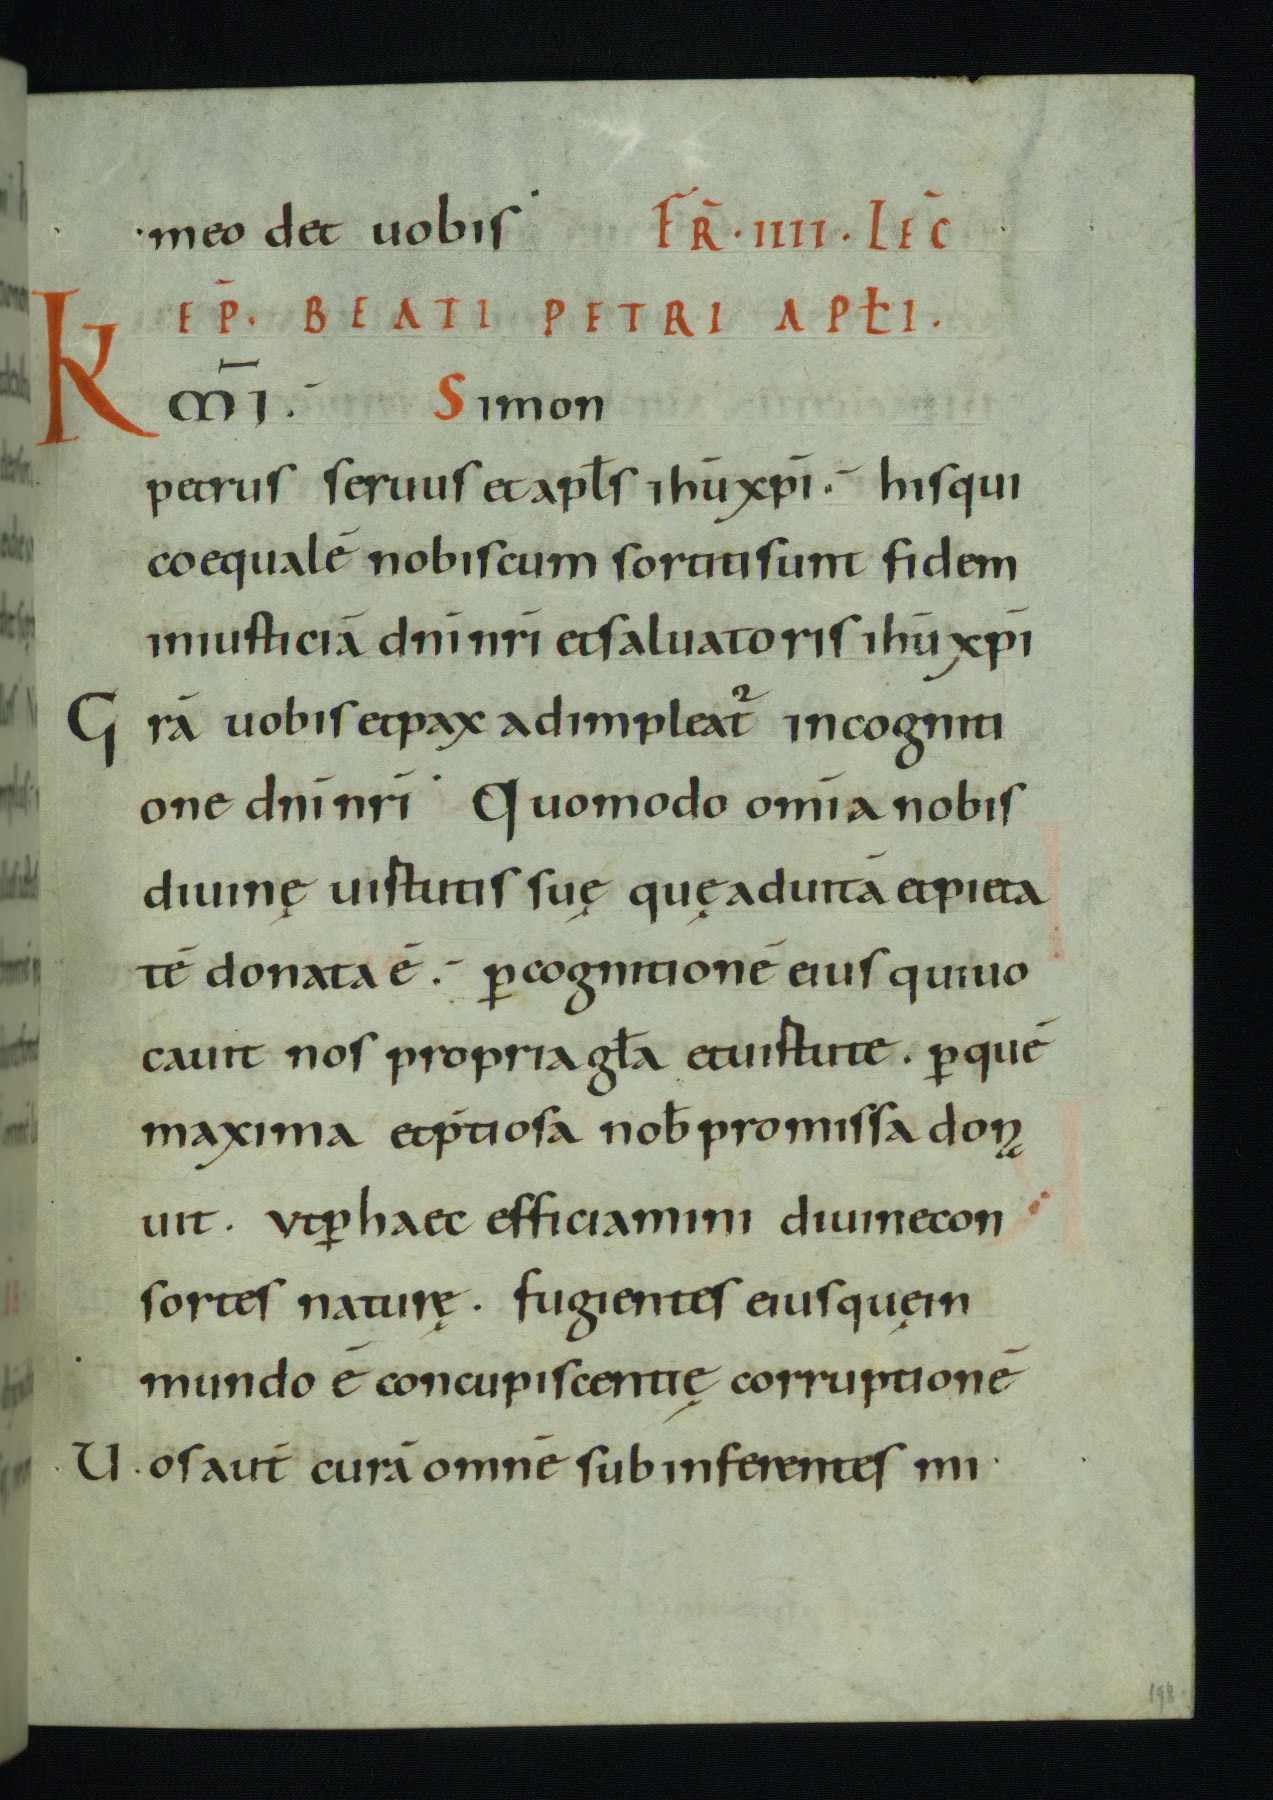 meo det uobis· FR̄·IIII·LEC̄
EP̄· BEATI PETRI APŁI·
KMĪ· Simon
petrus seruus et apłs ihū xpī· his qui
coequalē nobiscum sortiti sunt fidem
in iusticiā dnī nrī et saluatoris ihū xpī
Grā uobis et pax adimpleat᷑ in cogniti
one dnī nrī· Quomodo omīa nobis
diuinę uirtutis suę quę ad uitā et pieta
tē donata ē· ꝑ cognitionē eius qui uo
cauit nos propria gła et uirtute· ꝑ quē
maxima et p̄tiosa nob̄ promissa dona
uit· vt ꝑ haec efficiamini diuine con
sortes naturę· fugientes eius quę in
mundo ē concupiscentię corruptionē
Uos aut̄ curā omnē subinferentes mi
198